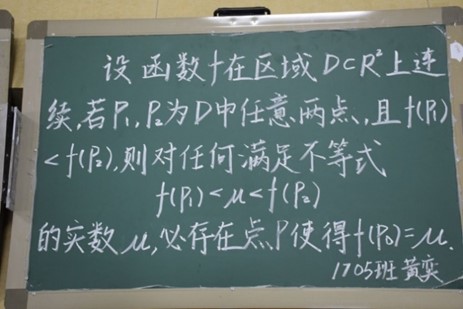 设函数f在区域D⊂R²上连
续,若P₁,P₂为D中任意两点,且f(P₁)
<f(P₂),则对任何满足不等式
f(P₁)<μ<f(P₂)
的实数μ,必存在点P使得f(P₀)=μ.
1705班 黄奕